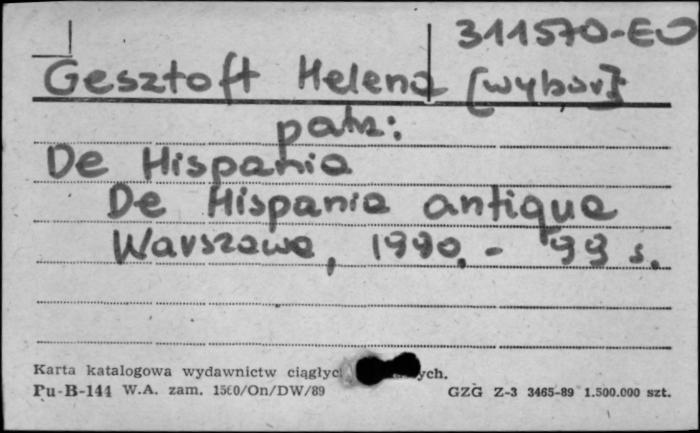 311570-EO
Gesztoft Helena [wybór]
patrz:
De Hispania
De Hispania antiqua
Warszawa, 1990. - 99 s.
Karta katalogowa wydawnictw ciągłyc ych.
Pu-B-144 W.A. zam. 1560/On/DW/89 GZG Z-3 3465-89 1.500.000 szt.